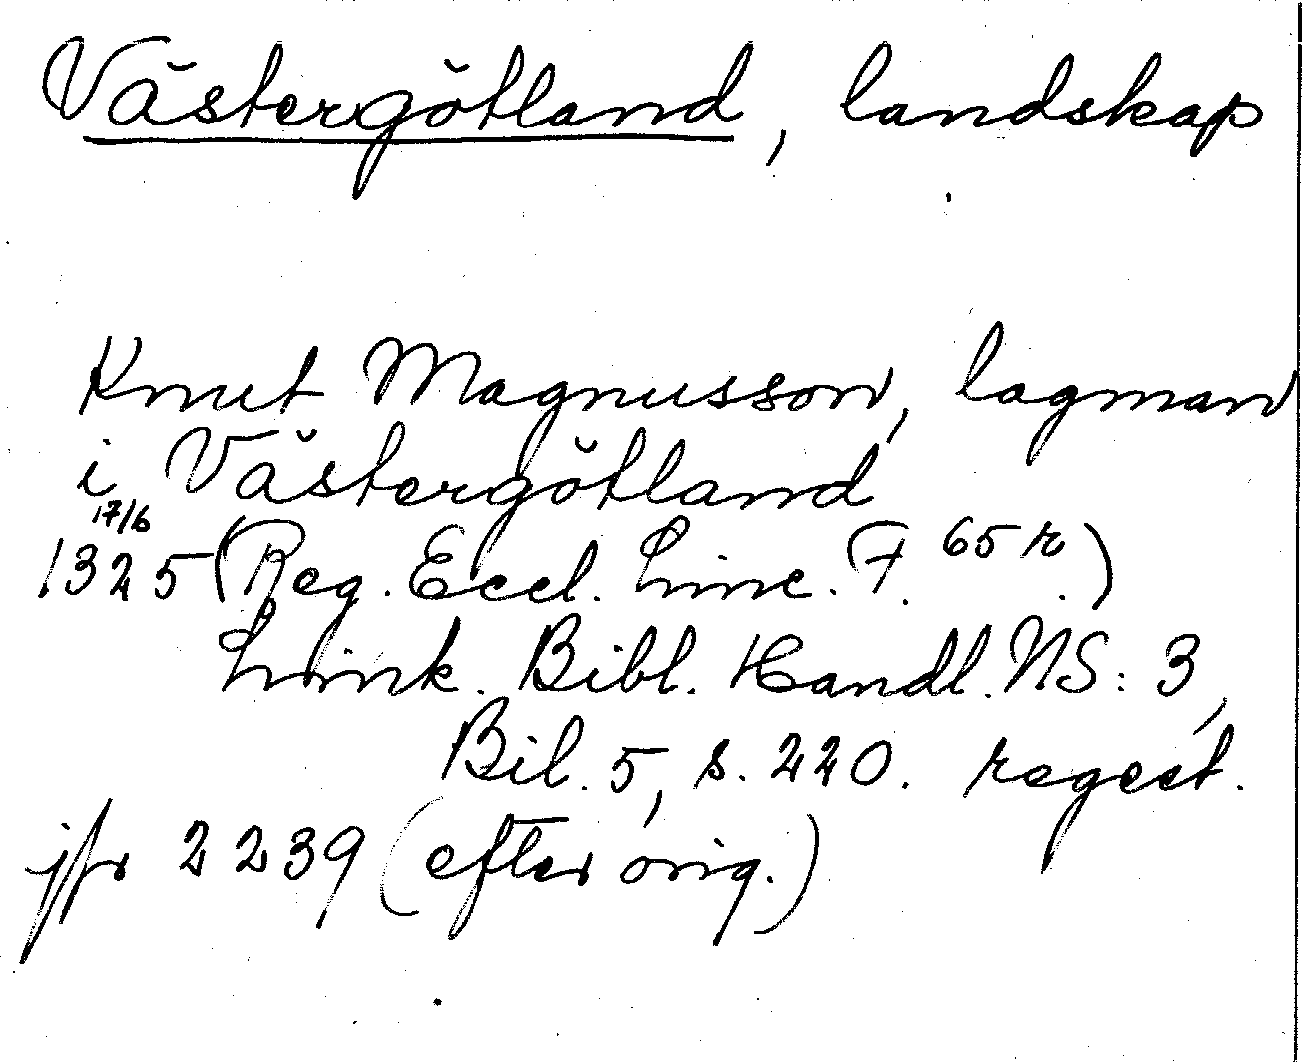 Västergötland, landskap
Knut Magnusson, lagman
i Västergötland
17/6
1325 (Reg. Eccl. Linc. F. 65 r.)
Link. Bibl. Handl. NS: 3,
Bil. 5, s. 220. regest.
jfr 2239 (efter orig.)